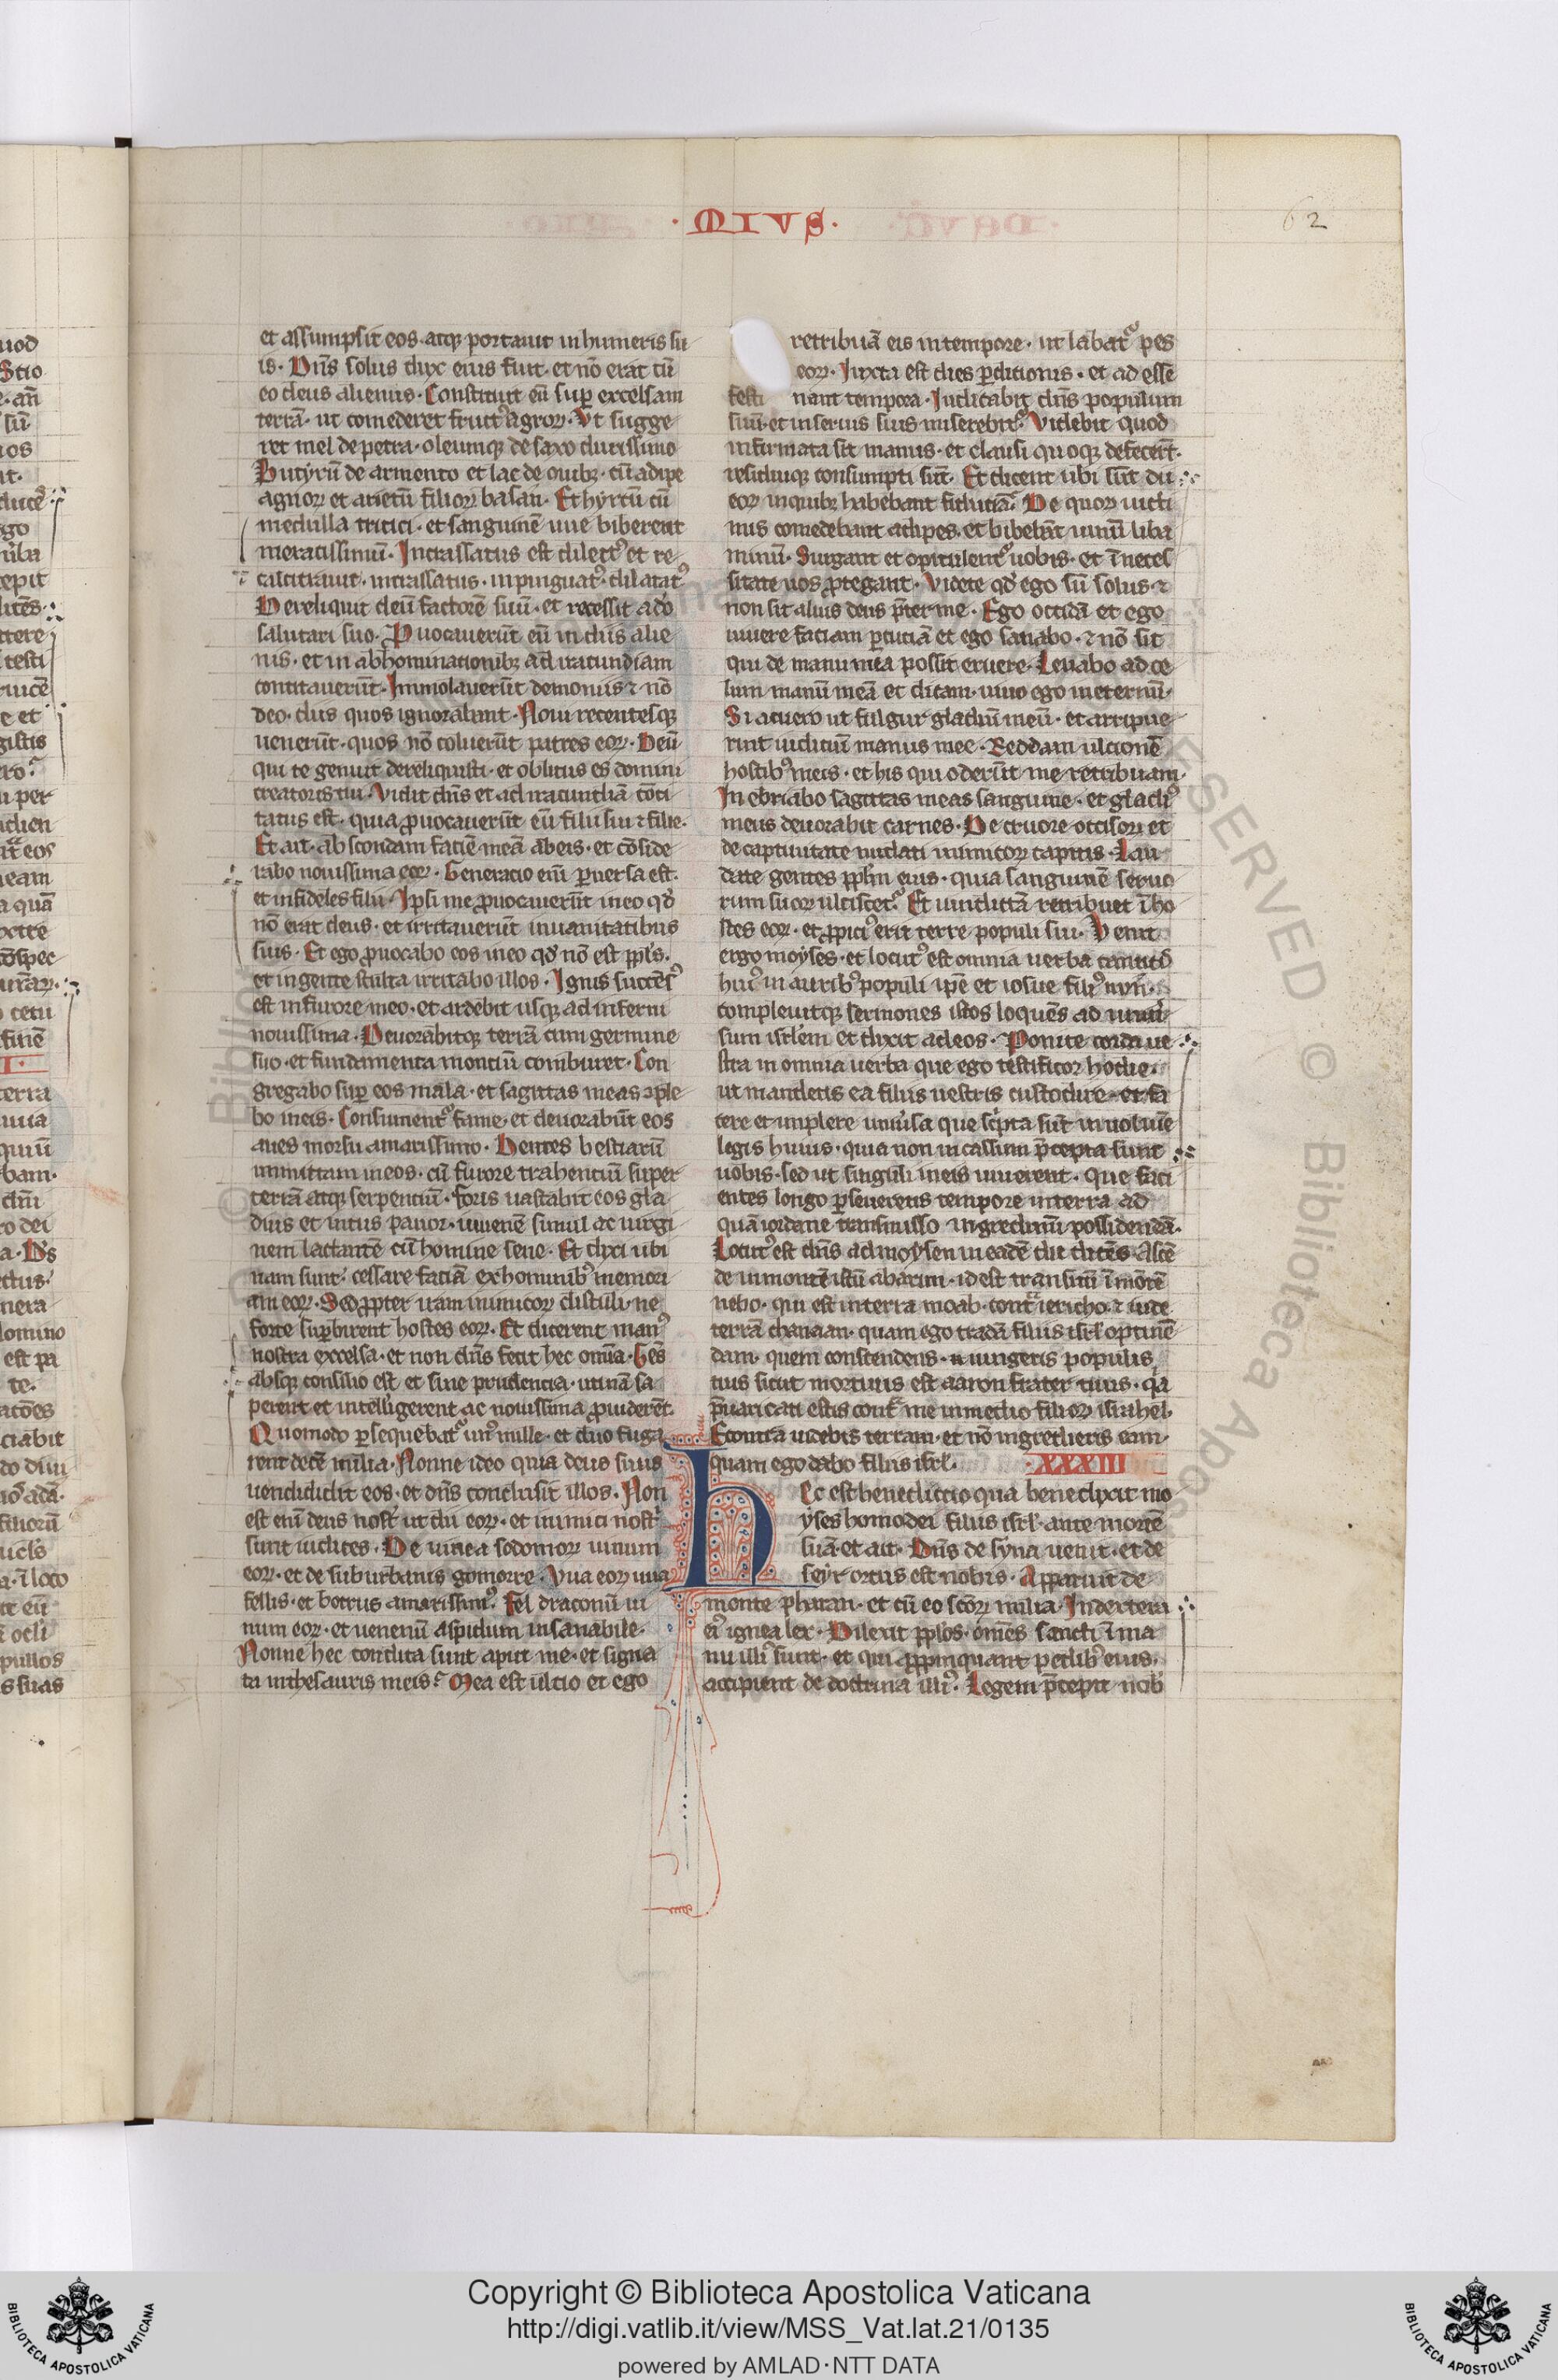 · MIVS ·
62
et assumpsit eos. atqꝫ portauit in humeris su
is. Dn̄s solus dux eius fuit. et nō erat cū
eo deus alienus. Constituit eū suꝑ excelsam
terrā. ut comederet fructꝰ agroꝝ. Vt sugge
ret mel de petra. oleumqꝫ de saxo durissimo
Butyrū de armento et lac de ouibꝫ. cū adipe
agnoꝝ et arietū filioꝝ basan. Et hyrcū cū
medulla tritici. et sanguinē uue biberent
meracissimū. Incrassatus est dilectꝰ et re
calcitrauit. incrassatus. inpinguatꝰ. dilatatꝰ
Dereliquit deū factorē suū. et recessit a dō
salutari suo. Ꝓuocauerūt eū in diis alie
nis. et in abhominationibꝫ ad iracundiam
concitauerūt. Immolauerūt demoniis ⁊ nō
deo. diis quos ignorabant. Noui recentesqꝫ
uenerūt. quos nō coluerūt patres eoꝝ. Deū
qui te genuit dereliquisti. et oblitus es domini
creatoris tui. Vidit dn̄s et ad iracundiā conci
tatus est. quia ꝓuocauerūt eū filii sui ⁊ filie.
Et ait. abscondam faciē meā ab eis. et cōside
rabo nouissima eoꝝ. Generacio eni ꝑuersa est.
et infideles filii. Ipsi me ꝓuocauerūt in eo qd̄
nō erat deus. et irritauerūt in uanitatibus
suis. Et ego ꝓuocabo eos in eo qd̄ nō est ppl̄s.
et in gente stulta irritabo illos. Ignis succēsꝰ
est in furore meo. et ardebit usqꝫ ad inferni
nouissima. Deuorabitqꝫ terrā cum germine
suo. et fundamenta montiū comburet. Con
gregabo suꝑ eos mala. et sagittas meas ꝯple
bo in eis. Consumentᷣ fame. et deuorabūt eos
aues morsu amarissimo. Dentes bestiarū
immittam in eos. cū furore trahentiū super
terrā atqꝫ serpentiū. Foris uastabit eos gla
dius et intus pauor. iuuenē simul ac uirgi
nem lactantē cū homine sene. Et dixi ubi
nam sunt. cessare faciā ex hominibꝰ memori
am eoꝝ. Sed ꝓpter iram inimicoꝝ distuli. ne
forte suꝑbirent hostes eoꝝ. Et dicerent manꝰ
nostra excelsa. et non dn̄s fecit hec omīa. Gēs
absqꝫ consilio est et sine prudencia. utinā sa
perent et intelligerent ac nouissima ꝓuiderēt.
Quomodo ꝑsequebatᷣ unꝰ mille. et duo fuga
rent decē milia. Nonne ideo quia deus suus
uendidit eos. et dn̄s conclusit illos. Non
est eni deus nost̄ ut dii eoꝝ. et inimici nost̄
sunt iudices. De uinea sodomoꝝ uinum
eoꝝ. et de suburbanis gomorre. Vua eoꝝ uua
fellis. et botrus amarissimꝰ. Fel draconū ui
num eoꝝ. et uenenū aspidum insanabile.
Nonne hec condita sunt aput me. et signa
ta in thesauris meis. Mea est ultio et ego
retribuā eis in tempore. ut labatᷣ pes
eoꝝ. Iuxta est dies ꝑditionis. et ad esse
festi nant tempora. Iudicabit dn̄s populum
suū. et in seruis suis miserebitᷣ. Videbit quod
infirmata sit manus. et clausi quoqꝫ defecerūt.
residuiqꝫ consumpti sūt. Et dicent ubi sūt dii
eoꝝ in quibꝫ habebant fiduciā. De quoꝝ uicti
mis comedebant adipes. et bibebāt uinū liba
minū. Surgant et opitulentᷣ uobis. et ī neces
sitate uos ꝓtegant. Videte qd̄ ego sū solus ⁊
non sit alius deus p̄ter me. Ego occidā et ego
uiuere faciam ꝑcutiā et ego sanabo. ⁊ nō sit
qui de manu mea possit eruere. Leuabo ad ce
lum manū meā et dicam. uiuo ego in eternū.
Si acuero ut fulgur gladiū meū. et arripue
rint iudiciū manus mee. Reddam ulcionē
hostibꝰ meis. et his qui oderūt me retribuam.
Inebriabo sagittas meas sanguine. et gladiꝰ
meus deuorabit carnes. De cruore occisoꝝ et
de captiuitate nudati inimicoꝝ capitis. Lau
date gentes ppl̄m eius. quia sanguinē seruo
rum suoꝝ ulciscetᷣ. Et uindictā retribuet ī ho
stes eoꝝ. et ꝓpiciꝰ erit terre populi sui. Venit
ergo moyses. et locutꝰ est omnia uerba cantici
huiꝰ in auribꝰ populi ipse et iosue filiꝰ nun.
compleuitqꝫ sermones istos loquēs ad uniū
sum isrl̄em et dixit ad eos. Ponite corda ue
stra in omnia uerba que ego testificor hodie.
ut mandetis ea filiis uestris custodire. et fa
cere et implere uniūsa que sc̄pta sūt in uoluīe
legis huius. quia non incassum p̄cepta sunt
uobis. sed ut singuli in eis uiuerent. Que faci
entes longo ꝑseueretis tempore in terra ad
quā iordane transmisso ingredimī possidendā.
Locutꝰ est dn̄s ad moysen in eadē die dicēs. Ascē
de in montē istū abarim. id est transitū ī mōtē
nebo. qui est in terra moab. contᷓ iericho. ⁊ uide
terrā chanaan. quam ego tradā filiis isrl̄ optinē
dam. quem conscendens. iungeris populis
tuis sicut mortuus est aaron frater tuus. qᷓ
p̄uaricati estis contᷓ me in medio filioꝝ israhel.
Econtra uidebis terram. et nō ingredieris eam.
quam ego dabo filiis isrl̄. XXXIII
Hec est benedictio qua benedixit mo
yses homo dei filiis isrl̄ ante mortē
suā. et ait. Dn̄s de syna uenit. et de
seyr ortus est nobis. Apparuit de
monte pharan. et cū eo sc̄oꝝ milia. In dextera
eiꝰ ignea lex. Dilexit pplos. om̄es sancti ī ma
nu illiꝰ sunt. et qui ꝓpinquant pedibꝰ eius.
accipient de doctrina illiꝰ. Legem p̄cepit nob̄
Copyright © Biblioteca Apostolica Vaticana
http://digi.vatlib.it/view/MSS_Vat.lat.21/0135
powered by AMLAD·NTT DATA
BIBLIOTECA APOSTOLICA VATICANA
BIBLIOTECA APOSTOLICA VATICANA